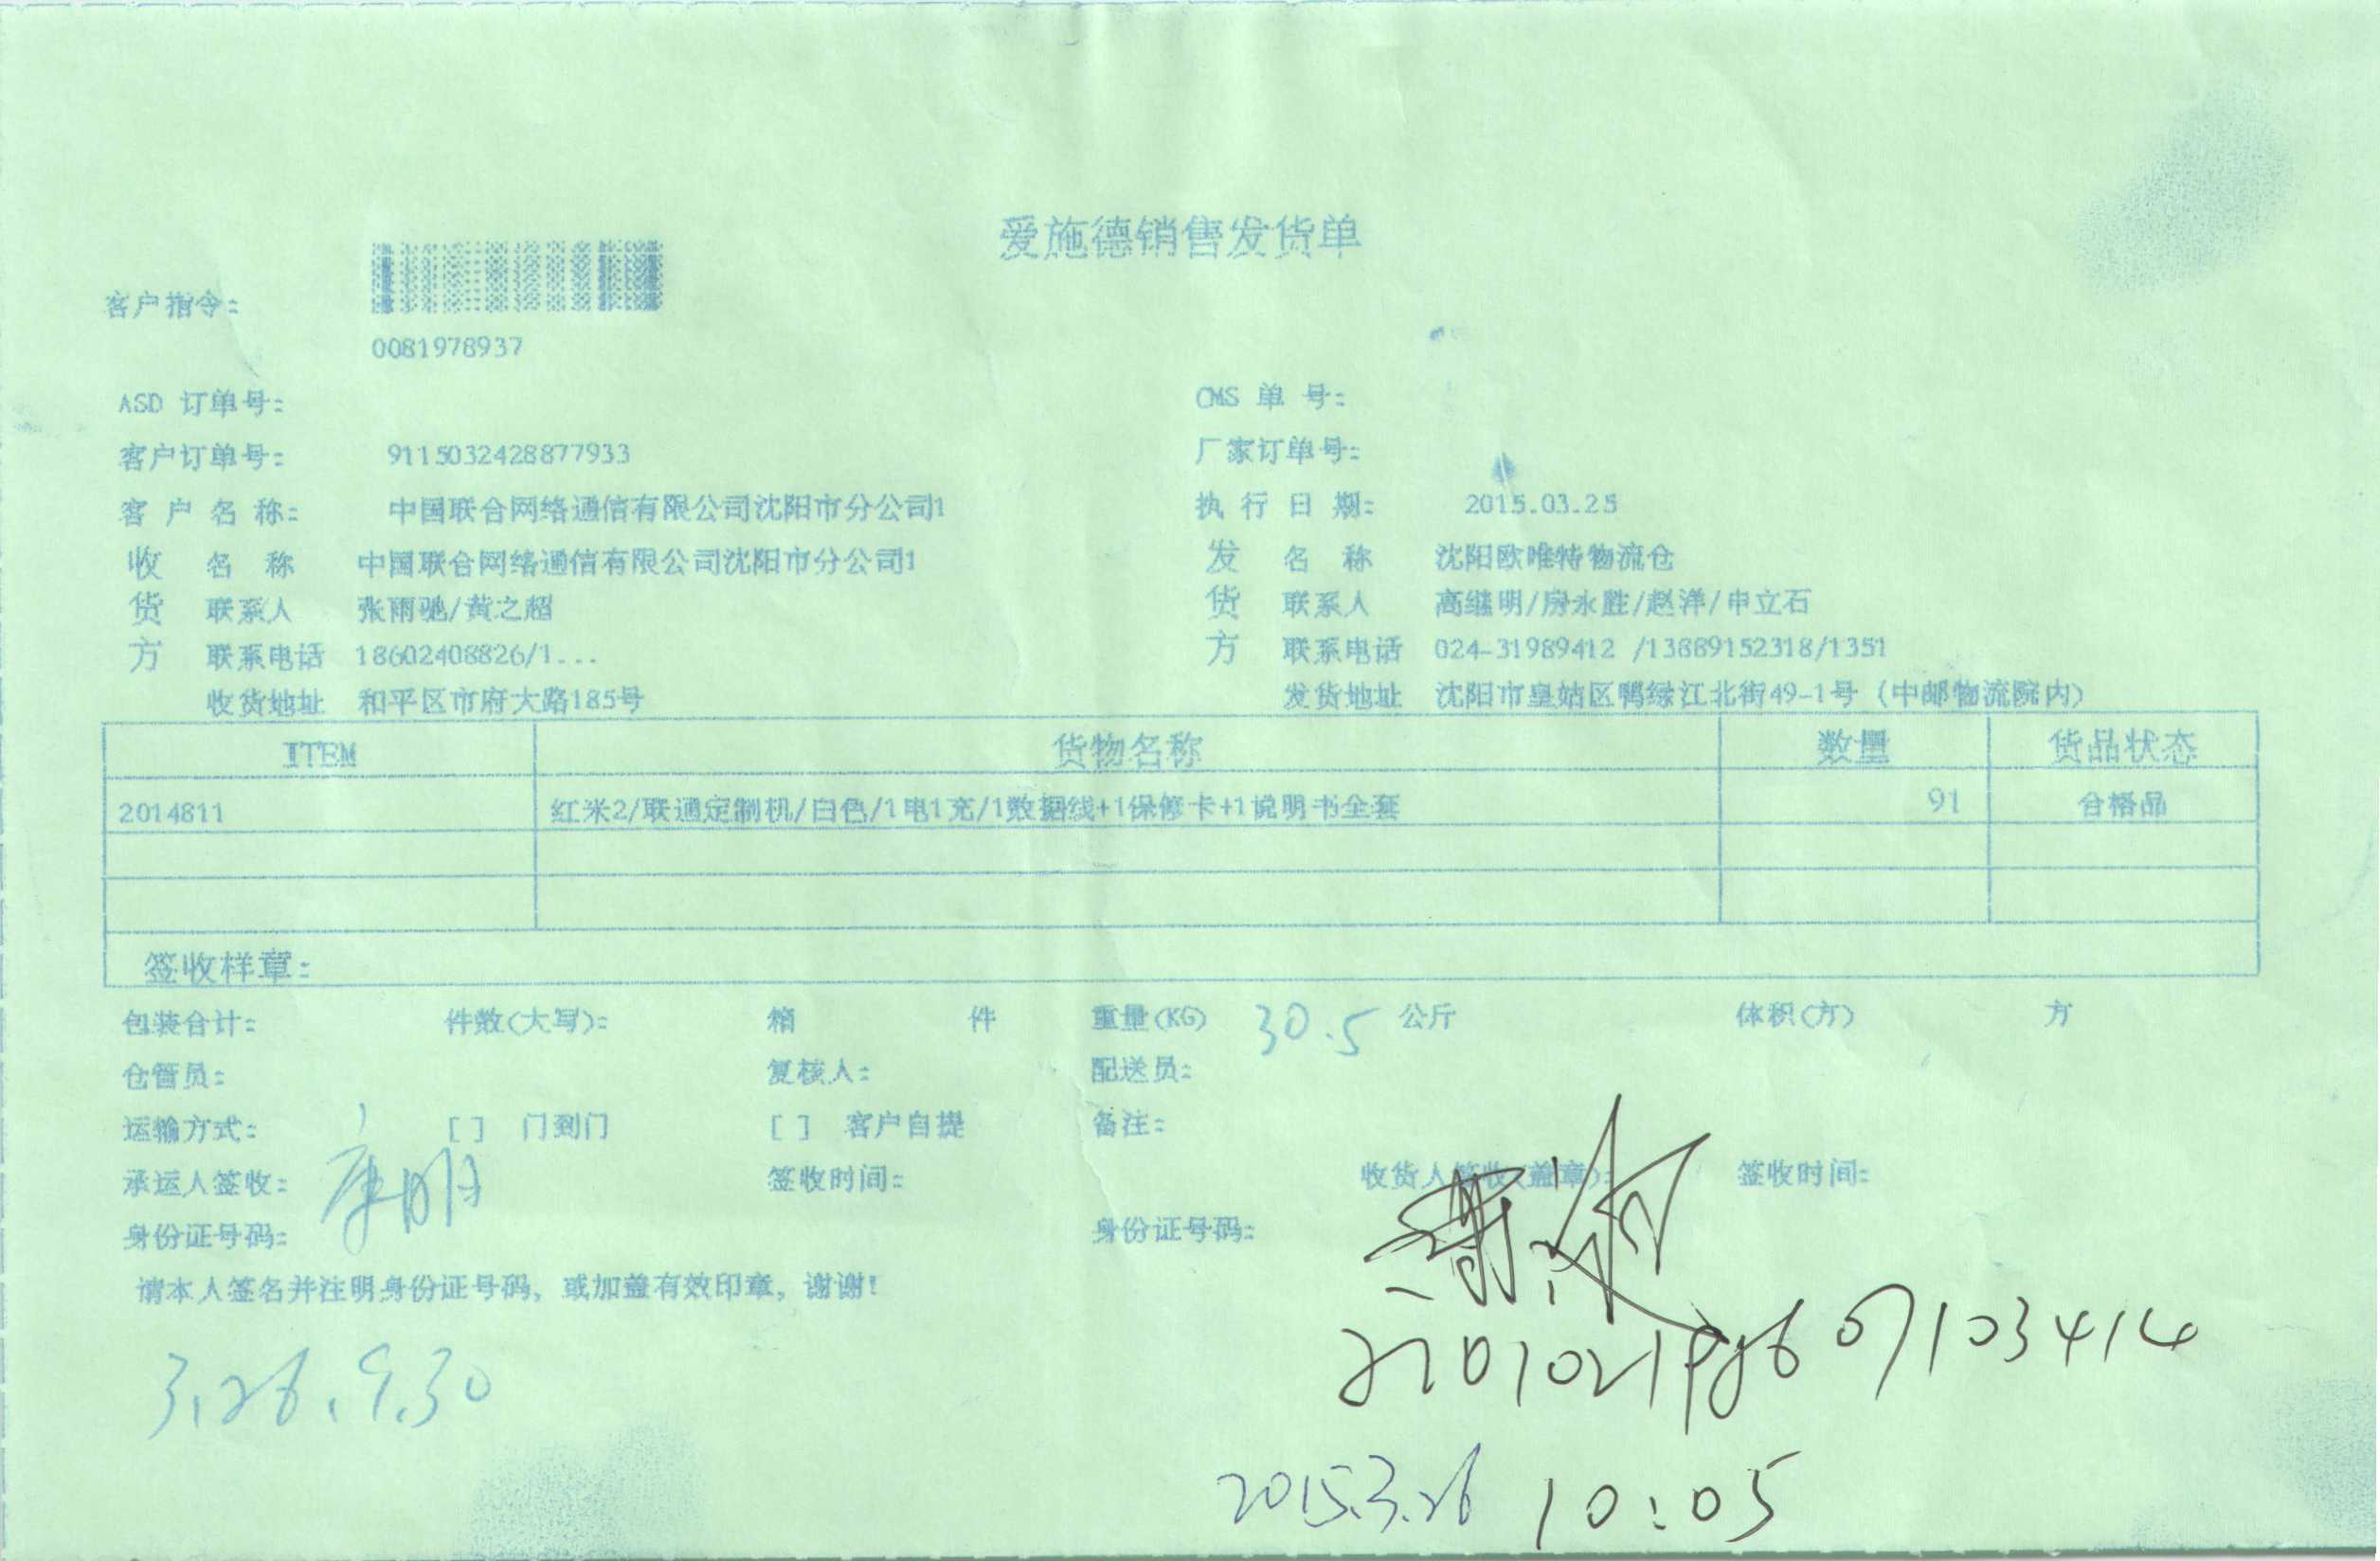 爱施德销售发货单
客户指令:
0081978937
ASD 订单号:
CMS 单 号:
客户订单号: 9115032428877933
厂家订单号:
客 户 名 称: 中国联合网络通信有限公司沈阳市分公司1
执 行 日 期: 2015.03.25
收 名 称 中国联合网络通信有限公司沈阳市分公司1
发 名 称 沈阳欧唯特物流仓
货 联系人 张雨驰/黄之超
货 联系人 高继明/房永胜/赵洋/申立石
方 联系电话 18602408826/1...
方 联系电话 024-31989412 /13889152318/1351
收货地址 和平区市府大路185号
发货地址 沈阳市皇姑区鸭绿江北街49-1号 (中邮物流院内)
ITEM 货物名称 数量 货品状态
2014811 红米2/联通定制机/白色/1电1充/1数据线+1保修卡+1说明书全套 91 合格品
签收样章:
包装合计: 件数(大写): 箱 件 重量(KG) 30.5 公斤 体积(方) 方
仓管员: 复核人: 配送员:
运输方式: [ ] 门到门 [ ] 客户自提 备注:
承运人签收: 签收时间: 收货人签收(盖章): 签收时间:
身份证号码: 身份证号码:
请本人签名并注明身份证号码, 或加盖有效印章, 谢谢!
3.26.9.30
2015.3.26 10:05